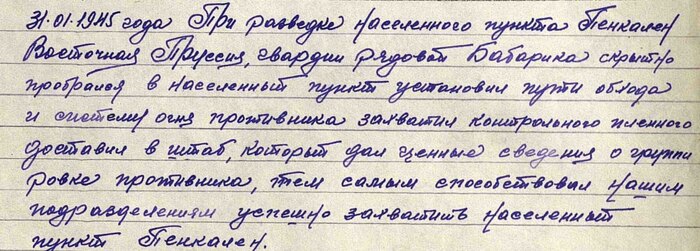 31.01.1945 года При разведке населенного пункта Пенкален
Восточная Пруссия, гвардии рядовой Бабарика скрытно
пробрался в населенный пункт установил пути обхода
и систему огня противника захватил контрольного пленного
доставил в штаб, который дал ценные сведения о группи
ровке противника, тем самым способствовал нашим
подразделениям успешно захватить населенный
пункт Пенкален.